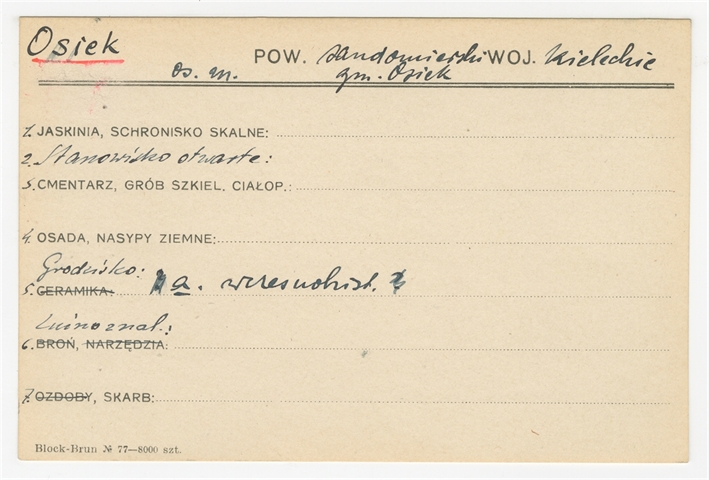 Osiek
POW. sandomierski WOJ. Kieleckie
os. m. gm. Osiek
1. JASKINIA, SCHRONISKO SKALNE:
2. Stanowisko otwarte:
3. CMENTARZ, GRÓB SZKIEL. CIAŁOP.:
4. OSADA, NASYPY ZIEMNE:
Grodzisko: a. wczesnohist.
5. CERAMIKA:
Luźno znal.:
6. BROŃ, NARZĘDZIA:
7. OZDOBY, SKARB:
Block-Brun № 77—8000 szt.